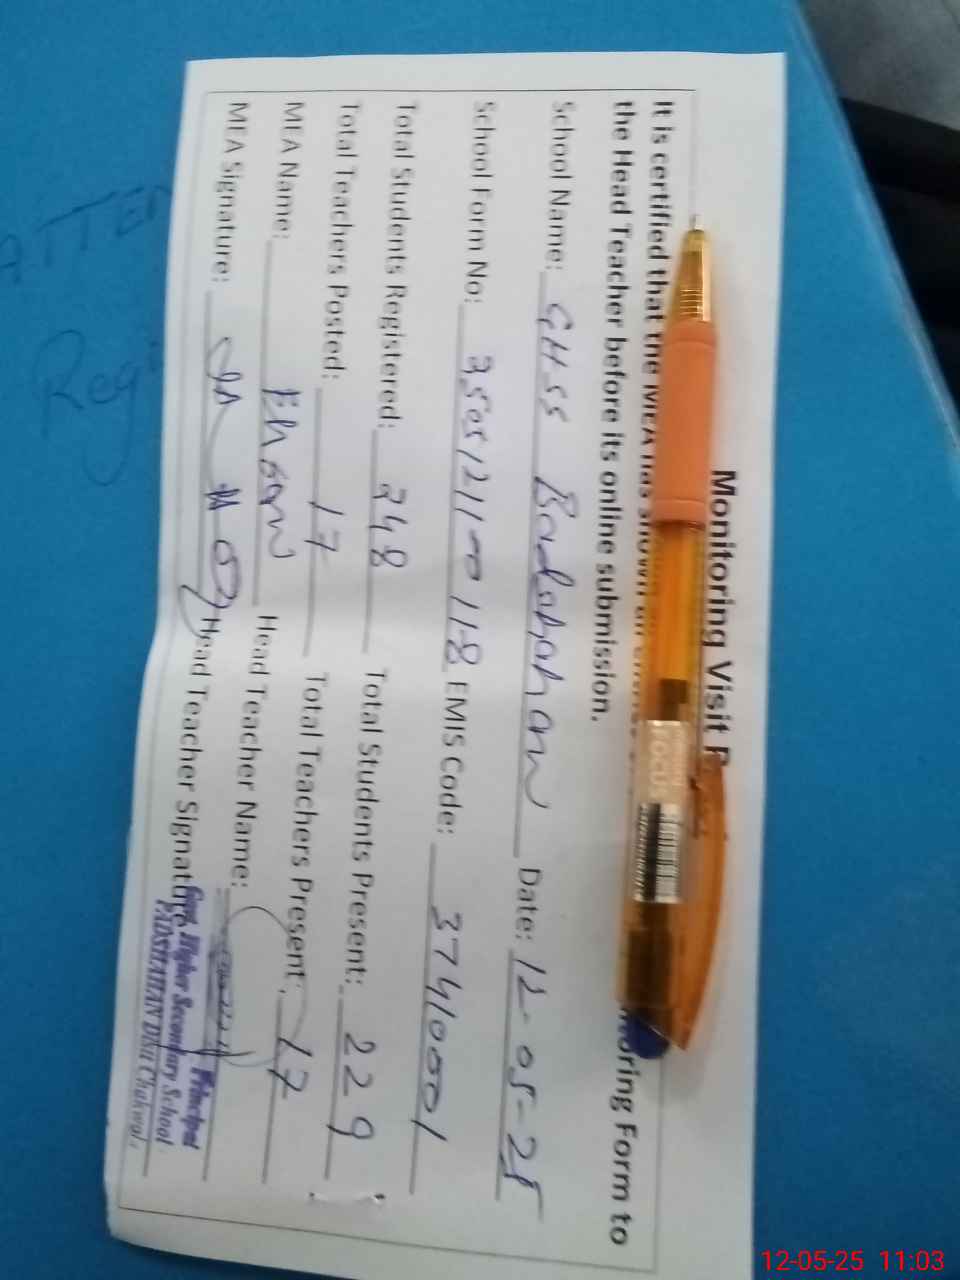 Monitoring Visit
It is certified that the MEA has shown
Monitoring Form to
the Head Teacher before its online submission.
School Name: GHSS Padshahan Date: 12-05-25
School Form No: EMIS Code: 37410001
Total Students Registered: 248 Total Students Present: 229
Total Teachers Posted: 17 Total Teachers Present: 17
MEA Name: Ehsan Head Teacher Name:
MEA Signature: Head Teacher Signature
Principal
Govt. Higher Secondary School
PADSHAHAN Distt Chakwal.
FOCUS
ATTEN
Regi
12-05-25 11:03